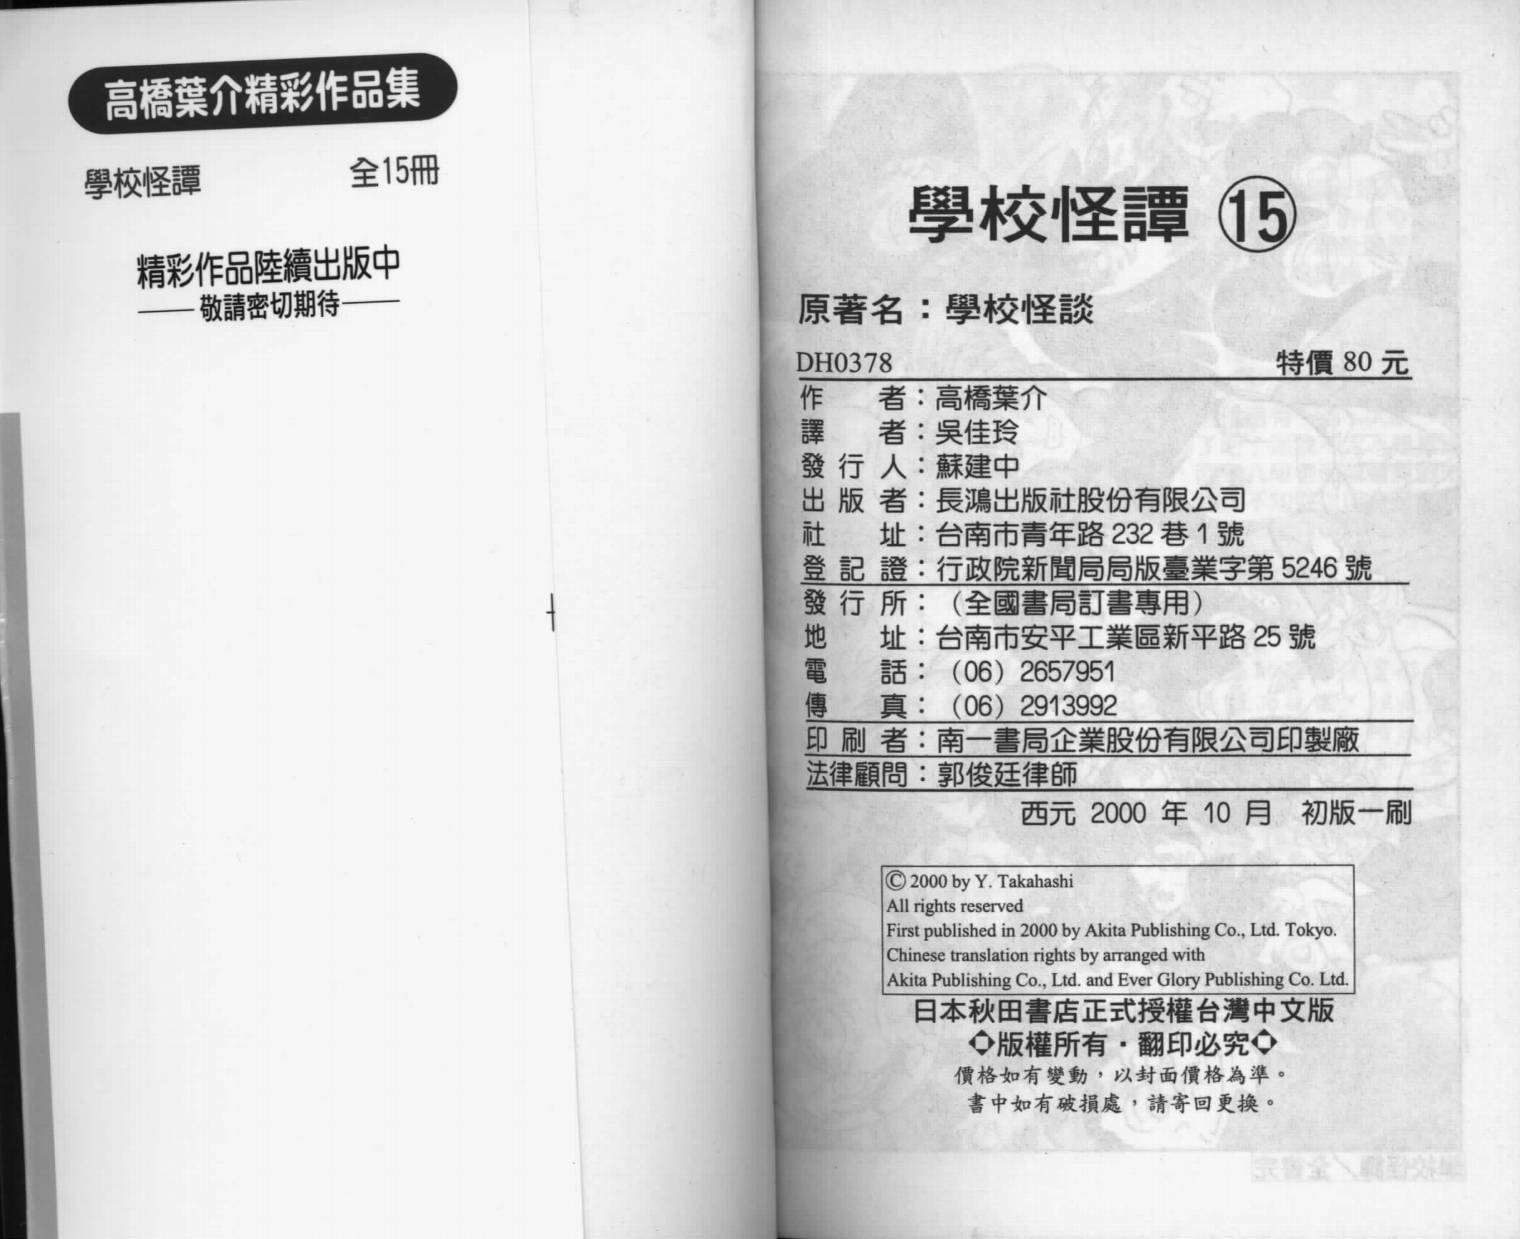 高橋葉介精彩作品集
學校怪譚 全15冊
精彩作品陸續出版中
——敬請密切期待——
學校怪譚 ⑮
原著名：學校怪談
DH0378 特價 80 元
作者：高橋葉介
譯者：吳佳玲
發行人：蘇建中
出版者：長鴻出版社股份有限公司
社址：台南市青年路 232 巷 1 號
登記證：行政院新聞局局版臺業字第 5246 號
發行所：（全國書局訂書專用）
地址：台南市安平工業區新平路 25 號
電話：（06）2657951
傳真：（06）2913992
印刷者：南一書局企業股份有限公司印製廠
法律顧問：郭俊廷律師
西元 2000 年 10 月 初版一刷
© 2000 by Y. Takahashi
All rights reserved
First published in 2000 by Akita Publishing Co., Ltd. Tokyo.
Chinese translation rights by arranged with
Akita Publishing Co., Ltd. and Ever Glory Publishing Co. Ltd.
日本秋田書店正式授權台灣中文版
◇版權所有・翻印必究◇
價格如有變動，以封面價格為準。
書中如有破損處，請寄回更換。